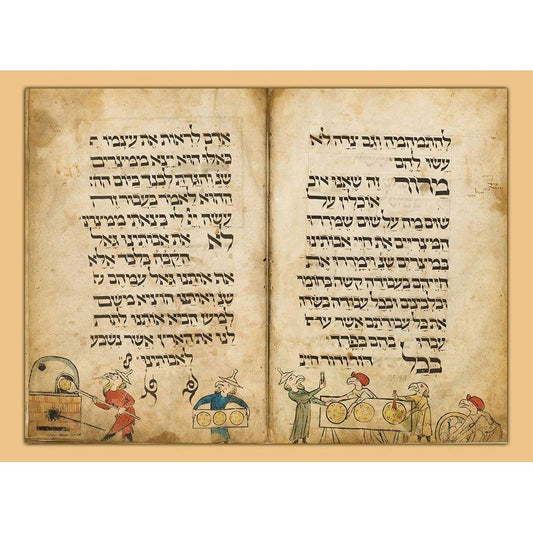 להתמהמה וגם צדה לא
עשו להם
מרור זה שאנו אוכ
אוכלין על
שום מה על שום שמררו
המצריים את חיי אבותינו
במצרים שנ וימררו את
חייהם בעבודה קשה בחומר
ובלבנים ובכל עבודה בשדה
את כל עבודתם אשר עבדו
בהם בפרך
בכל דור ודור חייב
אדם לראות את עצמו
כאלו הוא יצא ממצרים
שנ והגדת לבנך ביום ההו
ההוא לאמר בעבור זה
עשה יי לי בצאתי ממצרים
לא את אבותינו גאל
הקבה בלבד אלא
אף אותנו גאל עמהם ש
שנ ואותנו הוציא משם
למען הביא אותנו לתת
לנו את הארץ אשר נשבע
לאבותינו